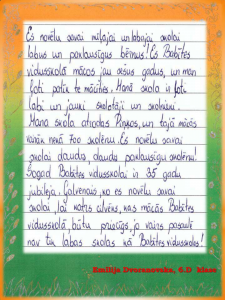 Es novēlu savai mīļajai un labajai skolai
labus un paklausīgus bērnus! Es Babītes
vidusskolā mācos jau sešus gadus, un man
ļoti patīk te mācīties. Manā skolā ir ļoti
labi un jauki skolotāji un skolnieki.
Mana skola atrodas Piņķos, un tajā mācās
vairāk nekā 700 skolēnu. Es novēlu savai
skolai daudz, daudz paklausīgu skolēnu!
Šogad Babītes vidusskolai ir 35 gadu
jubileja. Galvenais, ko es novēlu savai
skolai, lai katrs cilvēks, kas mācās Babītes
vidusskolā, būtu priecīgs, jo vairs pasaulē
nav tik labas skolas kā Babītes vidusskola!
Emīlija Dvoranovska, 6.D klase